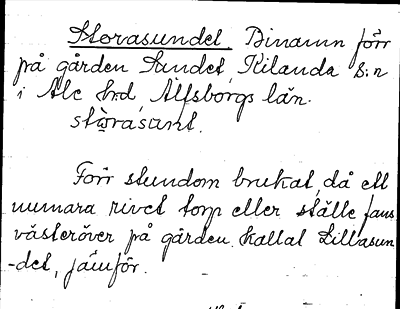 Storasundet. Binamn förr
på gården Sundet, Kilanda s:n
i Ale hrd, Älfsborgs län.
stωrasunt.
Förr stundom brukat, då ett
numara rivet torp eller ställe fans
västeröver på gården kallat Lillasun
-det, jämför.